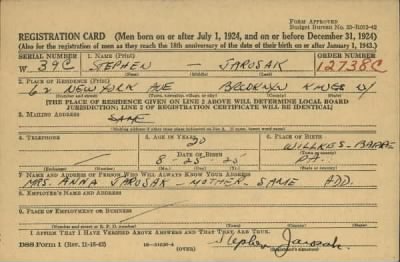 FORM APPROVED
Budget Bureau No. 33-R012-42
REGISTRATION CARD (Men born on or after July 1, 1924, and on or before December 31, 1924)
(Also for the registration of men as they reach the 18th anniversary of the date of their birth on or after January 1, 1943.)
SERIAL NUMBER 1. NAME (Print) ORDER NUMBER
W 39C STEPHEN - JAROSAK 12738C
(First) (Middle) (Last)
2. PLACE OF RESIDENCE (Print)
62 NEW YORK AVE BROOKLYN KINGS NY
(Number and street) (Town, township, village, or city) (County) (State)
[THE PLACE OF RESIDENCE GIVEN ON LINE 2 ABOVE WILL DETERMINE LOCAL BOARD
JURISDICTION; LINE 2 OF REGISTRATION CERTIFICATE WILL BE IDENTICAL]
3. MAILING ADDRESS
SAME
[Mailing address if other than place indicated on line 2. If same, insert word same]
4. TELEPHONE 5. AGE IN YEARS 6. PLACE OF BIRTH
20 WILLKES-BARRE
DATE OF BIRTH
8 - 25 - 25 PA.
(Exchange) (Number) (Mo.) (Day) (Yr.) (State or country)
7. NAME AND ADDRESS OF PERSON WHO WILL ALWAYS KNOW YOUR ADDRESS
MRS. ANNA JAROSAK - MOTHER - SAME ADD.
8. EMPLOYER'S NAME AND ADDRESS
9. PLACE OF EMPLOYMENT OR BUSINESS
(Number and street or R. F. D. number) (Town) (County) (State)
I AFFIRM THAT I HAVE VERIFIED ABOVE ANSWERS AND THAT THEY ARE TRUE.
DSS Form 1 (Rev. 11-16-42) (OVER) Stephen Jarosak
(Registrant's signature)